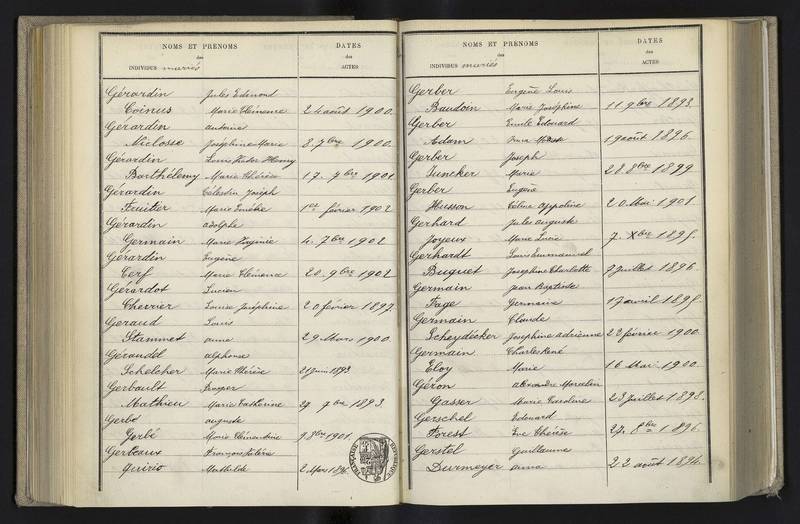 NOMS ET PRÉNOMS
des
INDIVIDUS mariés
DATES
des
ACTES
Gérardin Jules Edmond
Coinus Marie Clémence 24 août 1900.
Gérardin antoine
Niclosse Joséphine Marie 8. 7bre 1900.
Gérardin Louis Victor Henry
Barthélemy Marie Thérèse 17. 9bre 1901
Gérardin Célestin Joseph
Fruitier Marie 1er février 1902
Gérardin adolphe
Germain Marie 4. 7bre 1902
Gérardin Eugène
Cerf Marie Clémence 20. 9bre 1902
Gérardot Lucien
Chevrier Louise Joséphine 20 février 1897.
Geraud Louis
Stammet anna 29 Mars 1900.
Gérauld alphonse
Schelcher Marie Thérèse 21 Juin 1893
Gerbault Prosper
Mathieu Marie Catherine 27 7bre 1893.
Gerbé auguste
Gerbé Marie Clémentine 9 8bre 1901.
Gerbeaux François
Quirio Mathilde 2 Mars 1896
NOMS ET PRÉNOMS
des
INDIVIDUS mariés
DATES
des
ACTES
Gerber Eugène Louis
Baudoin Marie Joséphine 11 9bre 1893.
Gerber Emile Edouard
Adam 19 août 1896.
Gerber Joseph
Juncker Marie 28 8bre 1899
Gerber Eugène
Husson Céline Appoline 20 Mai 1901.
Gerhard Jules auguste
Joyeux Marie Lucie 7. Xbre 1895.
Gerhardt Louis Emmanuel
Buquet Joséphine Charlotte 9 Juillet 1896.
Germain Jean Baptiste
Fage Germaine 17 avril 1895.
Germain Claude
Scheydecker Joséphine adrienne 22 février 1900.
Germain Charles René
Eloy Marie 16 Mai 1900.
Géron alexandre Marcelin
Gasser Marie Caroline 23 Juillet 1898.
Gerschel Edouard
Forest Eve Thérèse 27. 8bre 1896.
Gerstel Guillaume
Durmeyer anna 22 août 1894.